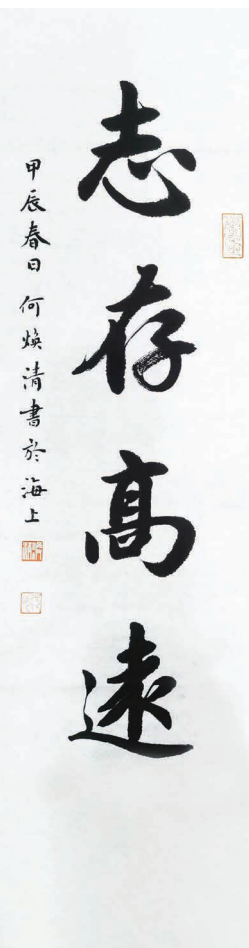 志存髙遠
甲辰春日何焕清書於海上